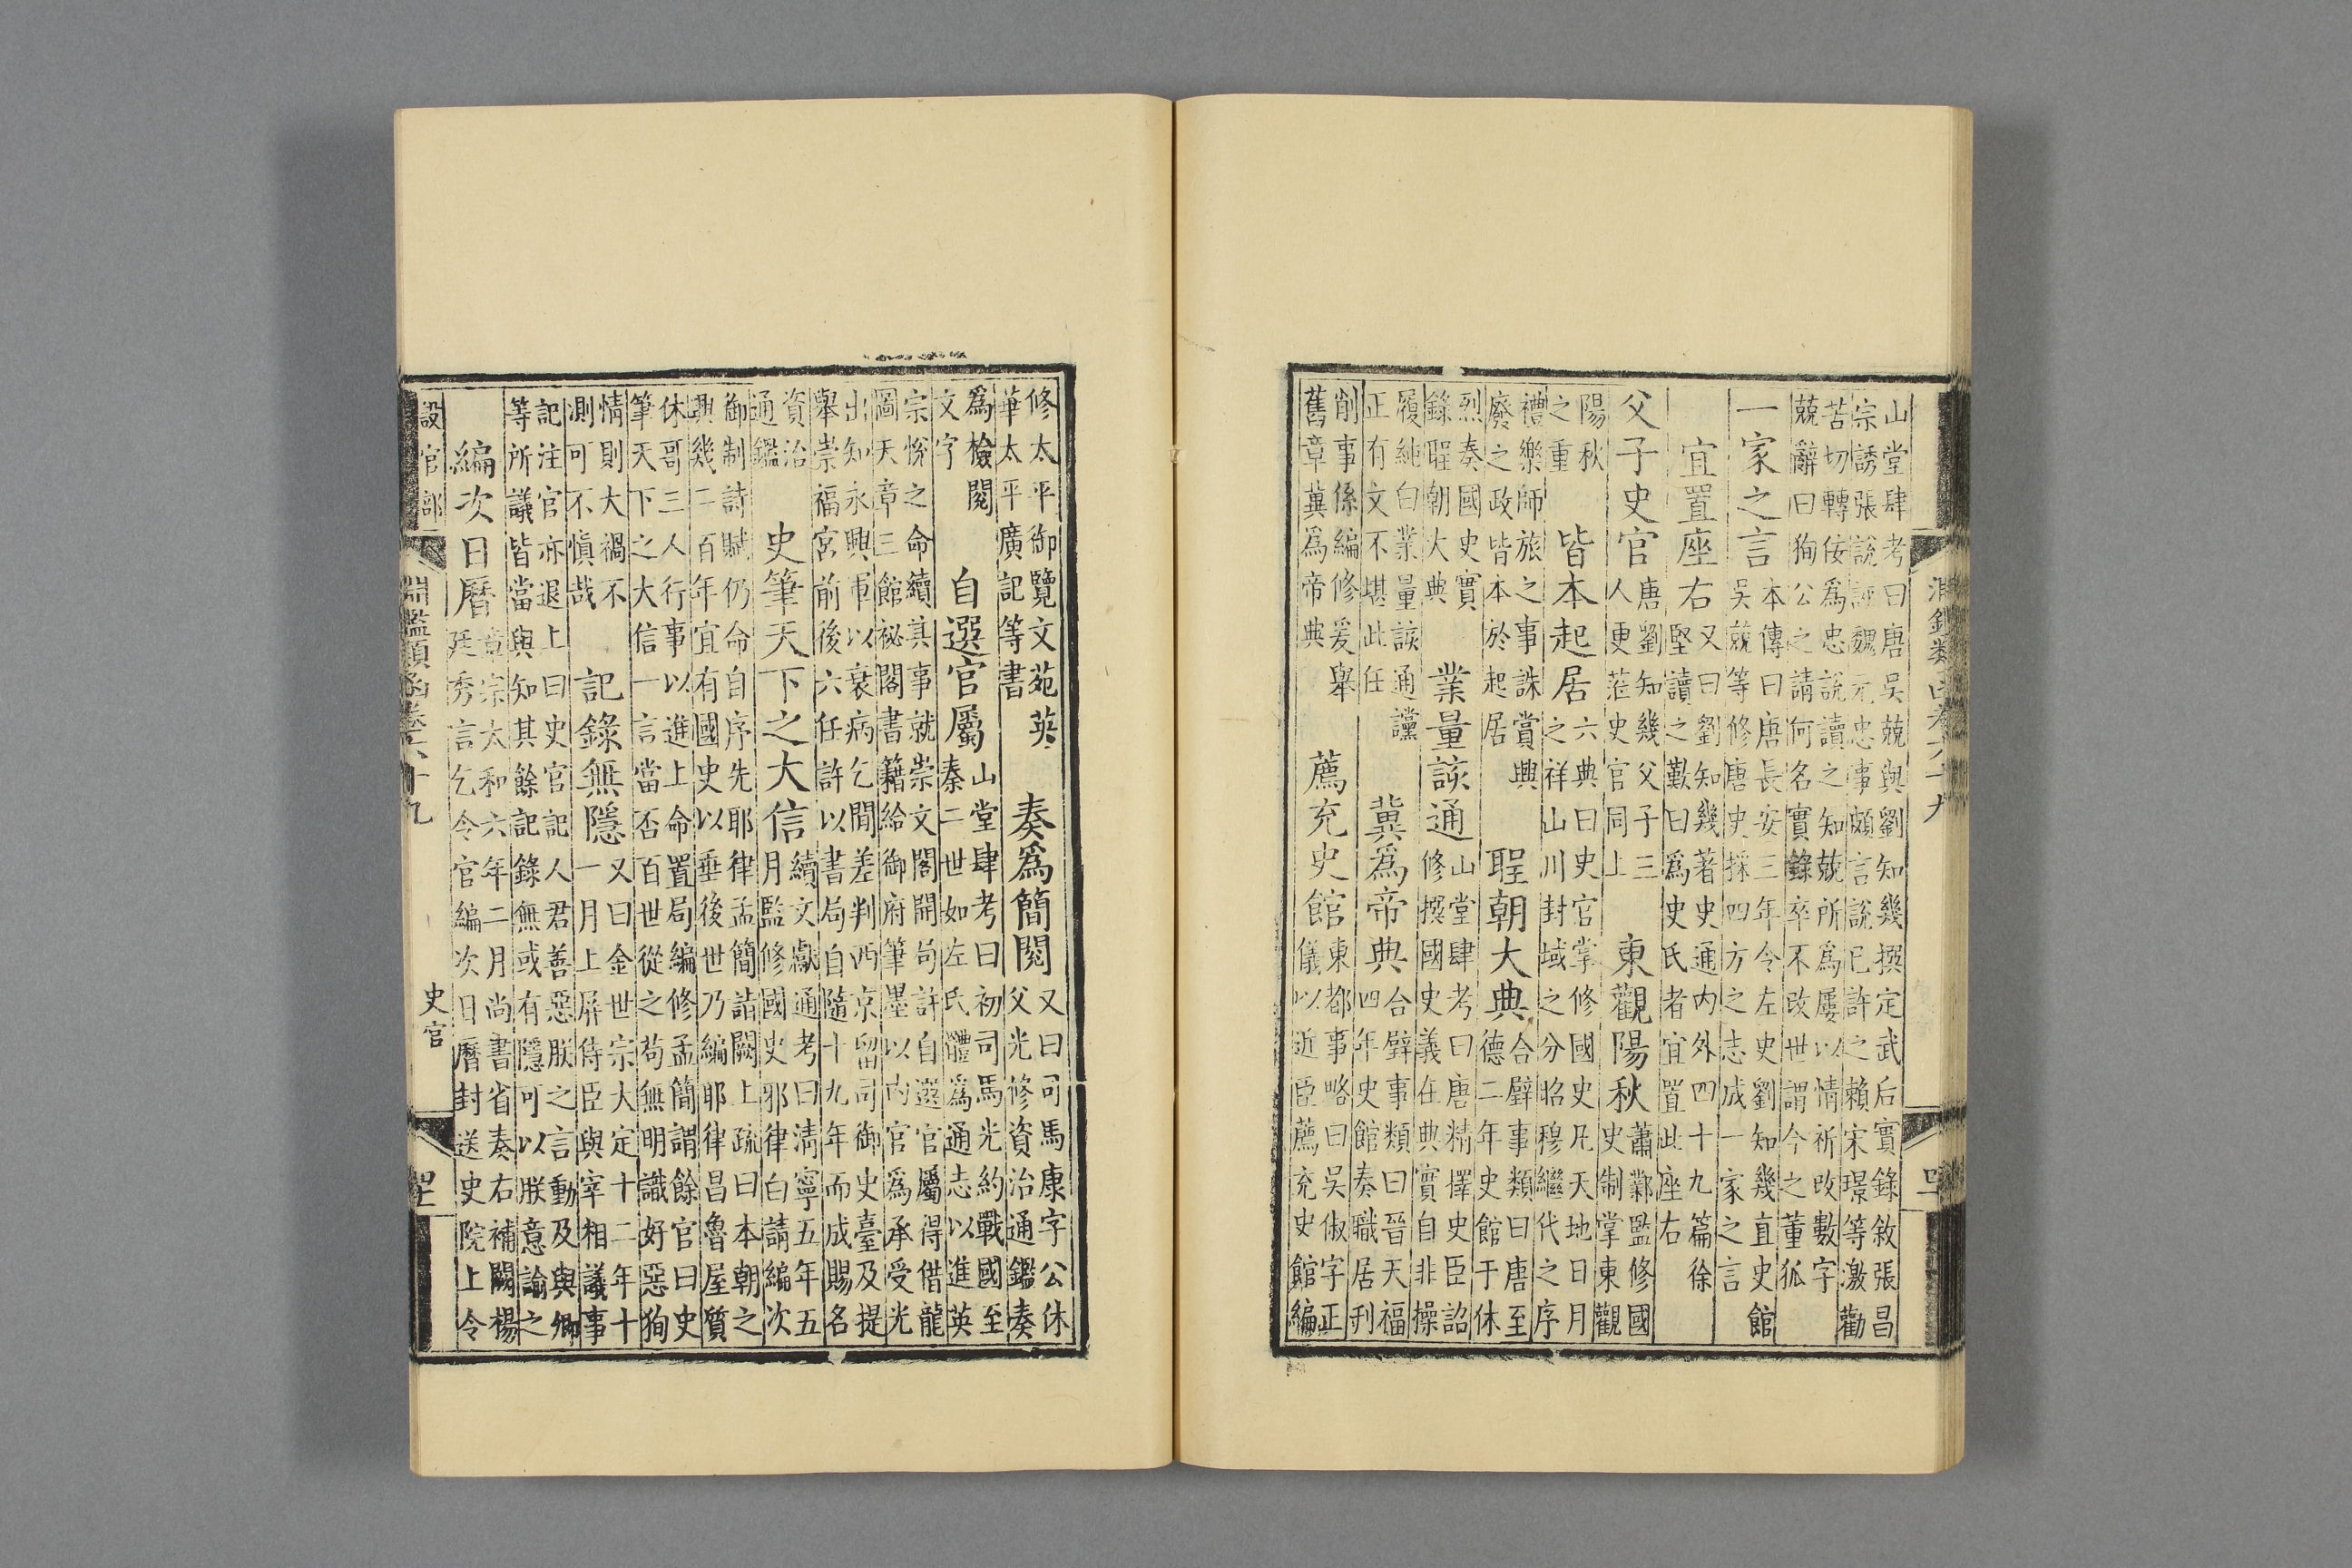 淵鑑類函卷六十九
山堂肆考曰唐吳兢與劉知幾撰定武后實錄敘張昌
宗誘張說誣魏元忠事頗言說已許之賴宋璟等激勸
苦切轉佞爲忠說讀之知兢所爲屢以情祈改數字
兢辭曰狥公之請何名實錄卒不改世謂今之董狐
一家之言
本傳曰唐長安三年令左史劉知幾直史館
吳兢等修唐史採四方之志成一家之言
宜置座右
又曰劉知幾著史通內外四十九篇徐
堅讀之歎曰爲史氏者宜置此座右
父子史官
唐劉知幾父子三
人更蒞史官同上
東觀陽秋
蕭鄴監修國
史制掌東觀
陽秋
之重
皆本起居
六典曰史官掌修國史凡天地日月
之祥山川封域之分昭穆繼代之序
禮樂師旅之事誅賞興
廢之政皆本於起居
聖朝大典
合璧事類曰唐至
德二年史館于休
烈奏國史實
錄聖朝大典
業量該通
山堂肆考曰唐精擇史臣詔
修撰國史義在典實自非操
履純白業量該通讜
正有文不堪此任
冀爲帝典
合璧事類曰晉天福
四年史館奏職居刋
削事係編修爰舉
舊章冀爲帝典
薦充史館
東都事略曰吳俶字正
儀以近臣薦充史館編
修太平御覽文苑英
華太平廣記等書
奏爲簡閱
又曰司馬康字公休
父光修資治通鑑奏
爲檢閱
文字
自選官屬
山堂肆考曰初司馬光約戰國至
秦二世如左氏體爲通志以進英
宗悅之命續其事就崇文閣開局許自選官屬得借龍
圖天章三館祕閣書籍給御府筆墨以內官爲承受光
出知永興軍以衰病乞間差判西京留司御史臺及提
舉崇福宮前後六任許以書局自隨十九年而成賜名
資治
通鑑
史筆天下之大信
續文獻通考曰清寧五年五
月監修國史邪律白請編次
御制詩賦仍命自序先耶律孟簡詣闕上疏曰本朝之
興幾二百年宜有國史以垂後世乃編耶律昌魯屋質
休哥三人行事以進上命置局編修孟簡謂餘官曰史
筆天下之大信一言當否百世從之苟無明識好惡狥
情則大禍不
測可不愼哉
記錄無隱
又曰金世宗大定十二年十
一月上屏侍臣與宰相議事
記注官亦退上曰史官記人君善惡朕之言動及與卿
等所議皆當與知其餘記錄無或有隱可以朕意諭之
編次日曆
章宗大和六年二月尚書省奏右補闕楊
廷秀言乞令官編次日曆封送史院上令
設官部
淵鑑類函卷六十九
史官